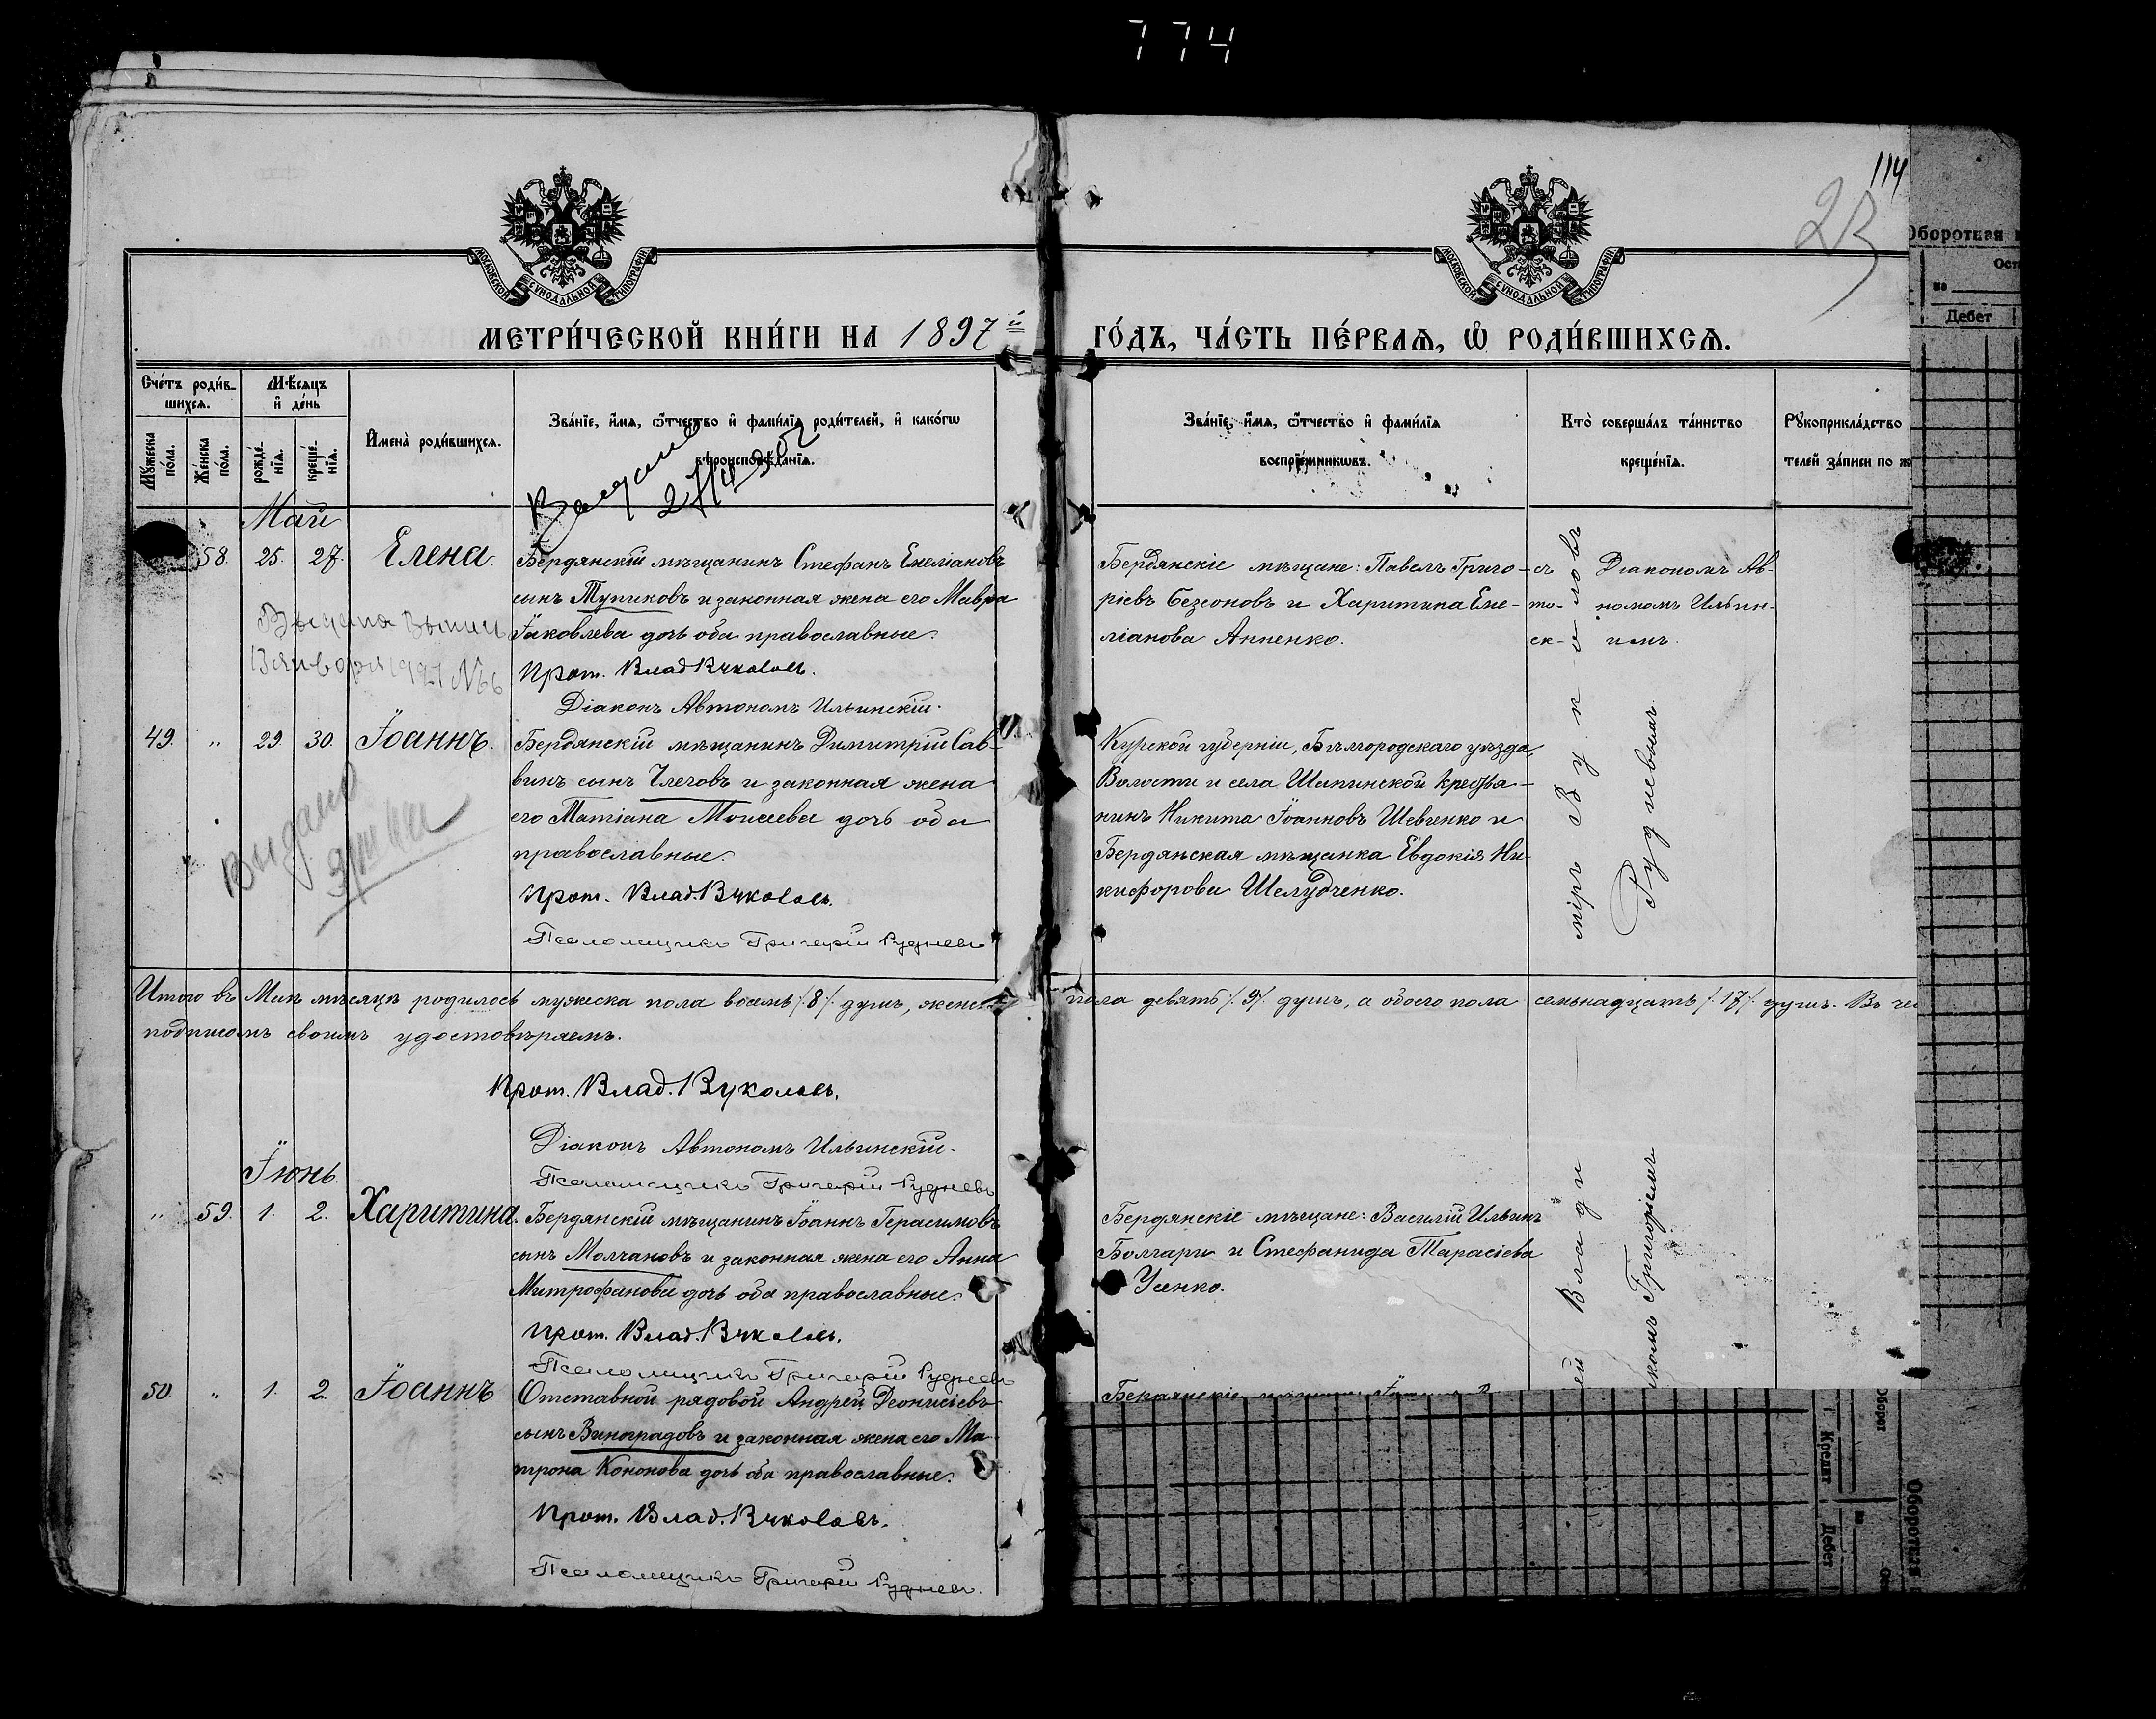 774
114
23
МОСКОВСКОЙ СѴНОДАЛЬНОЙ ТИПОГРАФІИ
МОСКОВСКОЙ СѴНОДАЛЬНОЙ ТИПОГРАФІИ
МЕТРИ́ЧЕСКОЙ КНИ́ГИ НА 1897й ГО́ДЪ, ЧА́СТЬ ПЕ́РВАѦ, Ѡ҆ РОДИ́ВШИХСѦ.
Сче́тъ роди́в-
шихсѧ.
Мѣ́сѧцъ
и҆ де́нь
Мꙋ́жеска
по́ла.
Же́нска
по́ла.
рожде́-
нїѧ.
креще́-
нїѧ.
И҆мена̀ роди́вшихсѧ.
Зва́нїе, и҆́мѧ, ѻ҆́тчество и҆ фами́лїѧ роди́телей, и҆ како́гѡ
вѣроисповѣ́данїѧ.
Зва́нїе, и҆́мѧ, ѻ҆́тчество и҆ фами́лїѧ
воспрїе́мникѡвъ.
Кто̀ соверша́лъ та́инство
креще́нїѧ.
Рꙋкоприкла́дство
телей за́писи по ж
Май
58. 25. 27. Елена.
Бердянскій мѣщанинъ Стефанъ Емеліановъ
сынъ Тупиковъ и законная жена его Мавра
Іаковлева дочь оба православные.
Прот. Влад. Вуколовъ.
Діаконъ Автономъ Ильинскій.
Бердянскіе мѣщане: Павелъ Григо-
ріевъ Безсоновъ и Харитина Еме-
ліанова Анненко.
съ Діакономъ Ав-
то- номомъ Ильин-
ск- имъ.
49. " 29. 30. Іоаннъ.
Бердянскій мѣщанинъ Димитрій Сав-
винъ сынъ Члеговъ и законная жена
его Татіана Моисеева дочь оба
православные.
Прот. Влад. Вуколовъ.
Псаломщикъ Григорій Рудневъ
Курской губерніи, Бѣлгородскаго уѣзда,
Волости и села Шипинской крестья-
нинъ Никита Іоанновъ Шевченко и
Бердянская мѣщанка Евдокія Ни-
кифорова Шелудченко.
Видано
Итого въ Маѣ мѣсяцѣ родилось мужеска пола восемь /8/ душъ, женска пола девять /9/ душъ, а обоего пола семьнадцать /17/ душъ. Въ че
подписомъ своимъ удостовѣряемъ.
Прот. Влад. Вуколовъ.
Діаконъ Автономъ Ильинскій.
Псаломщикъ Григорій Рудневъ
Іюнь.
" 59. 1. 2. Харитина.
Бердянскій мѣщанинъ Іоаннъ Герасимовъ
сынъ Молчановъ и законная жена его Анна
Митрофанова дочь оба православные.
Прот. Влад. Вуколовъ.
Псаломщикъ Григорій Рудневъ
Бердянскіе мѣщане: Василій Ильинъ
Болгари и Стефанида Тарасіева
Усенко.
50. " 1. 2. Іоаннъ
Отставной рядовой Андрей Деонисіевъ
сынъ Виноградовъ и законная жена его Ма-
трона Кононова дочь оба православные.
Прот. Влад. Вуколовъ.
Псаломщикъ Григорій Рудневъ.
Бердянскіе
ей Влади міръ Вуколовъ
икомъ Григоріемъ Рудневымъ.
Оборотная
на
Дебет
Оборот
Кредит
Дебет
Оборотная